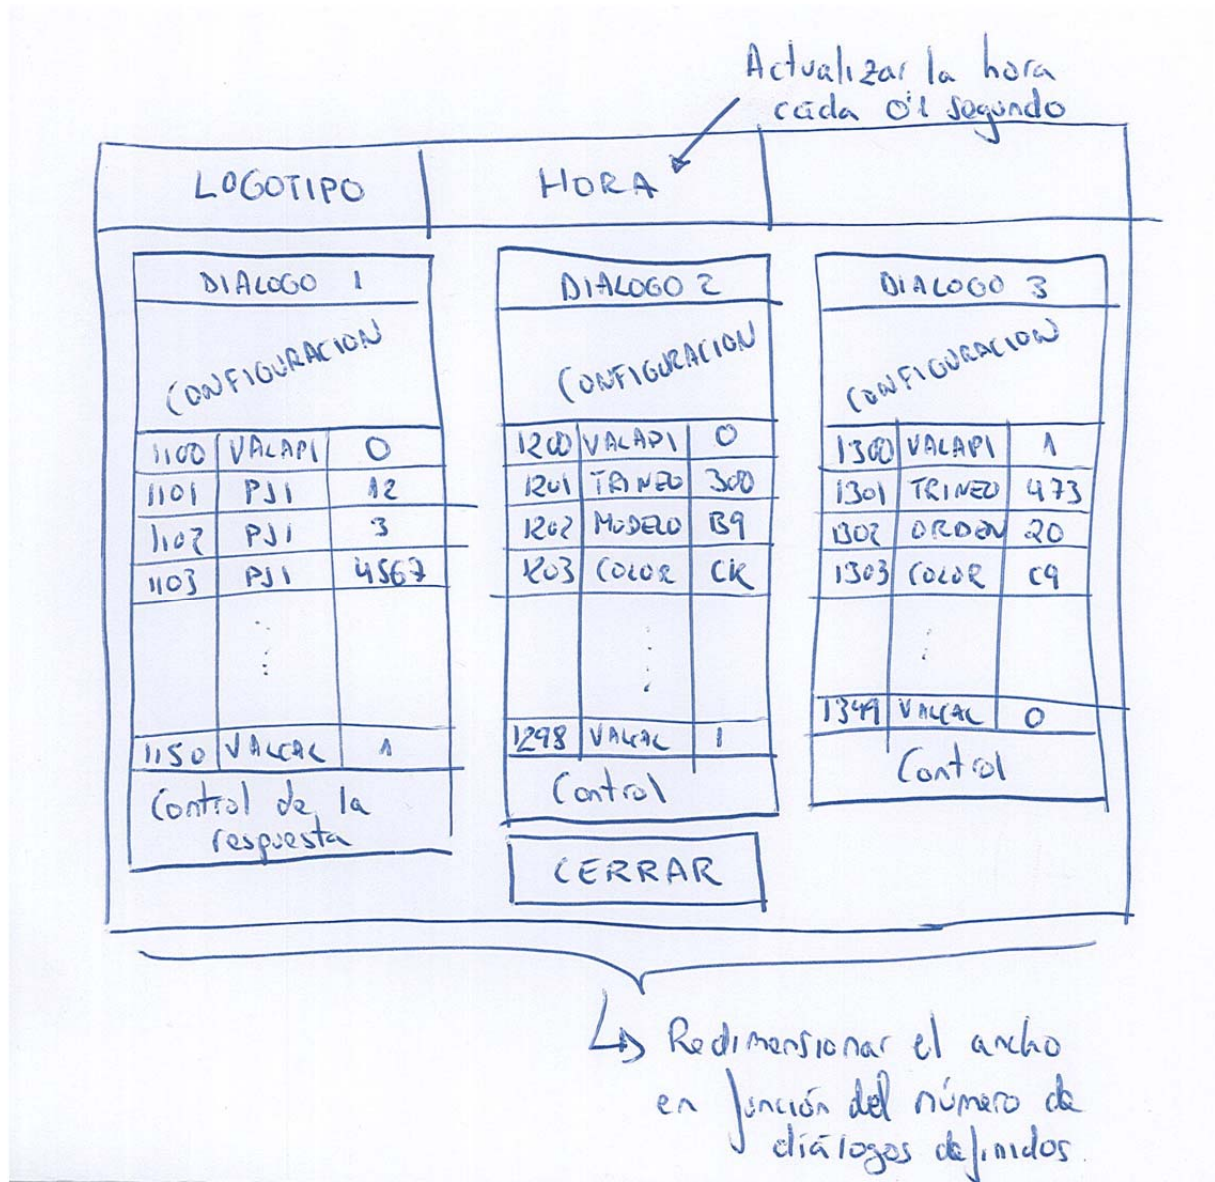 Actualizar la hora
cada 0'1 segundo
LOGOTIPO HORA
DIALOGO 1
CONFIGURACION
1100 VALAPI 0
1101 PJI 12
1102 PJI 3
1103 PJI 4567
1150 VALCAL 1
Control de la
respuesta
DIALOGO 2
CONFIGURACION
1200 VALAPI 0
1201 TRINEO 300
1202 MODELO B9
1203 COLOR CK
1298 VALCAL 1
Control
CERRAR
DIALOGO 3
CONFIGURACION
1300 VALAPI 1
1301 TRINEO 473
1302 ORDEN 20
1303 COLOR C9
1349 VALCAL 0
Control
Redimensionar el ancho
en función del número de
diálogos definidos.